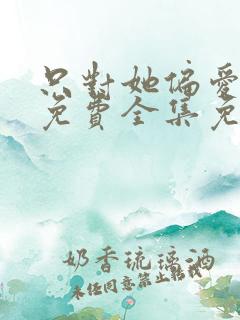 只對她偏愛
免費全集免
奶香琉璃酒
未经同意禁止转载